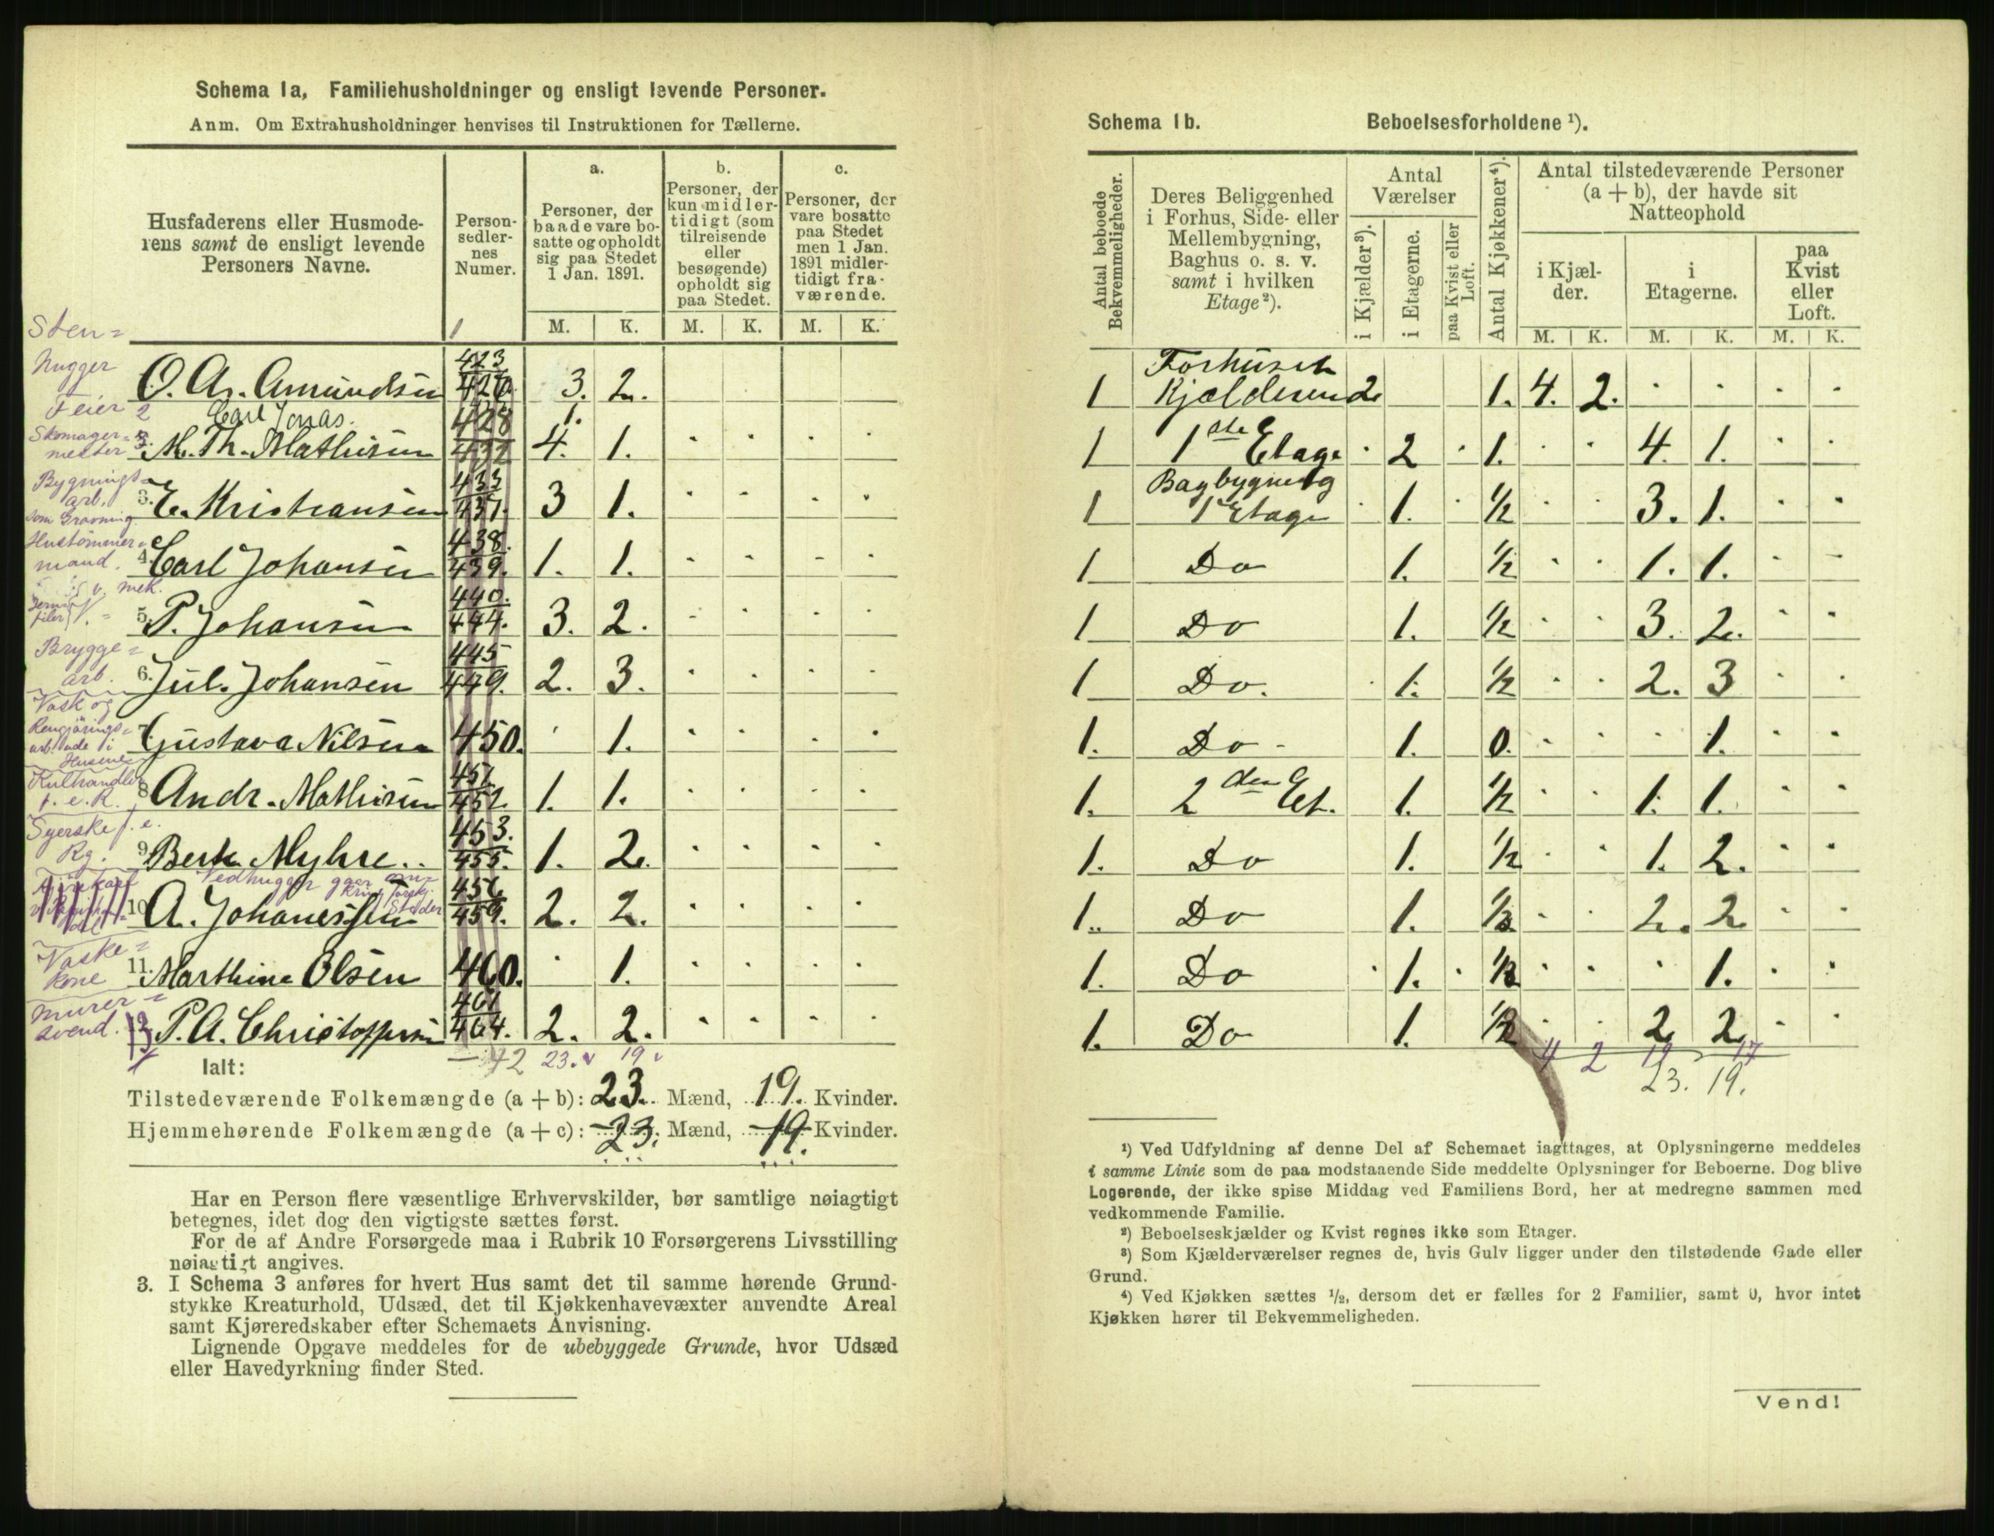 Schema 1a, Familiehusholdninger og ensligt levende Personer.
Anm. Om Extrahusholdninger henvises til Instruktionen for Tællerne.
Husfaderens eller Husmode-
rens samt de ensligt levende
Personers Navne.
Person-
sedler-
nes
Numer.
a.
Personer, der
baade vare bo-
satte og opholdt
sig paa Stedet
1 Jan. 1891.
b.
Personer, der
kun midler-
tidigt (som
tilreisende
eller
besøgende)
opholdt sig
paa Stedet.
c.
Personer, der
vare bosatte
paa Stedet
men 1 Jan.
1891 midler-
tidigt fra-
værende.
M. K. M. K. M. K.
Sten=
hugger O. A. Amundsen 423 426. 3. 2.
Feier 2 Carl Jonas. 1.
Skomager=
mester 3. M. Th. Mathisen 428 432 4. 1.
Bygnings=
arb. 3. E. Kristiansen 433 437. 3 1.
som Gravning
Hustømmer=
mand. 4. Carl Johansen 438. 439. 1. 1.
v. mek.
5. P. Johansen 440. 444. 3. 2.
Brygge=
arb. 6. Jul. Johansen 445 449. 2. 3.
Vask og
Rengjørings=
arb. ude i
Husene 7. Gustava Nilsen 450. 1.
Kulhandler
f. e. R. 8 Andr. Mathisen 451. 452. 1. 1.
Syerske f. e.
Rg. 9. Berte Myhre.. 453. 455. 1. 2.
Vedhugger gaar om=
10 A. Johanessen 456. 459. 2. 2.
Vaske=
kone 11. Marthine Olsen 460. 1.
Murer=
svend. P. A. Christoffersen 461 464. 2. 2.
42 23. 19
Ialt:
Tilstedeværende Folkemængde (a + b): 23. Mænd, 19. Kvinder.
Hjemmehørende Folkemængde (a + c): 23. Mænd, 19. Kvinder.
Har en Person flere væsentlige Erhvervskilder, bør samtlige nøiagtigt
betegnes, idet dog den vigtigste sættes først.
For de af Andre Forsørgede maa i Rubrik 10 Forsørgerens Livsstilling
nøiagtigt angives.
3. I Schema 3 anføres for hvert Hus samt det til samme hørende Grund-
stykke Kreaturhold, Udsæd, det til Kjøkkenhavevæxter anvendte Areal
samt Kjøreredskaber efter Schemaets Anvisning.
Lignende Opgave meddeles for de ubebyggede Grunde, hvor Udsæd
eller Havedyrkning finder Sted.
Schema 1b. Beboelsesforholdene ¹).
Antal beboede
Bekvemmeligheder.
Deres Beliggenhed
i Forhus, Side- eller
Mellembygning,
Baghus o. s. v.
samt i hvilken
Etage ²).
Antal
Værelser
i Kjælder ³).
i Etagerne.
paa Kvist eller
Loft.
Antal Kjøkkener ⁴).
Antal tilstedeværende Personer
(a + b), der havde sit
Natteophold
i Kjæl-
der.
i
Etagerne.
paa
Kvist
eller
Loft.
M. K. M. K. M. K.
Forhuset
1 Kjælderen 2 1. 4. 2.
1 1ste Etage 2 1. 4. 1.
Bagbygning
1 1 Etage 1. ½ 3. 1.
1 Do 1. ½ 1. 1.
1 Do 1. ½ 3. 2.
1 Do. 1. ½ 2. 3
1. Do 1. 0. 1.
1. 2den Et. 1. ½ 1. 1.
1. Do 1. ½ 1. 2.
1.. Do 1. ½ 2. 2
1. Do 1. ½ 1.
1. Do 1. ½ 2 2
4 2 19 17
23. 19.
¹) Ved Udfyldning af denne Del af Schemaet iagttages, at Oplysningerne meddeles
i samme Linie som de paa modstaaende Side meddelte Oplysninger for Beboerne. Dog blive
Logerende, der ikke spise Middag ved Familiens Bord, her at medregne sammen med
vedkommende Familie.
²) Beboelseskjælder og Kvist regnes ikke som Etager.
³) Som Kjælderværelser regnes de, hvis Gulv ligger under den tilstødende Gade eller
Grund.
⁴) Ved Kjøkken sættes ½, dersom det er fælles for 2 Familier, samt 0, hvor intet
Kjøkken hører til Bekvemmeligheden.
Vend!